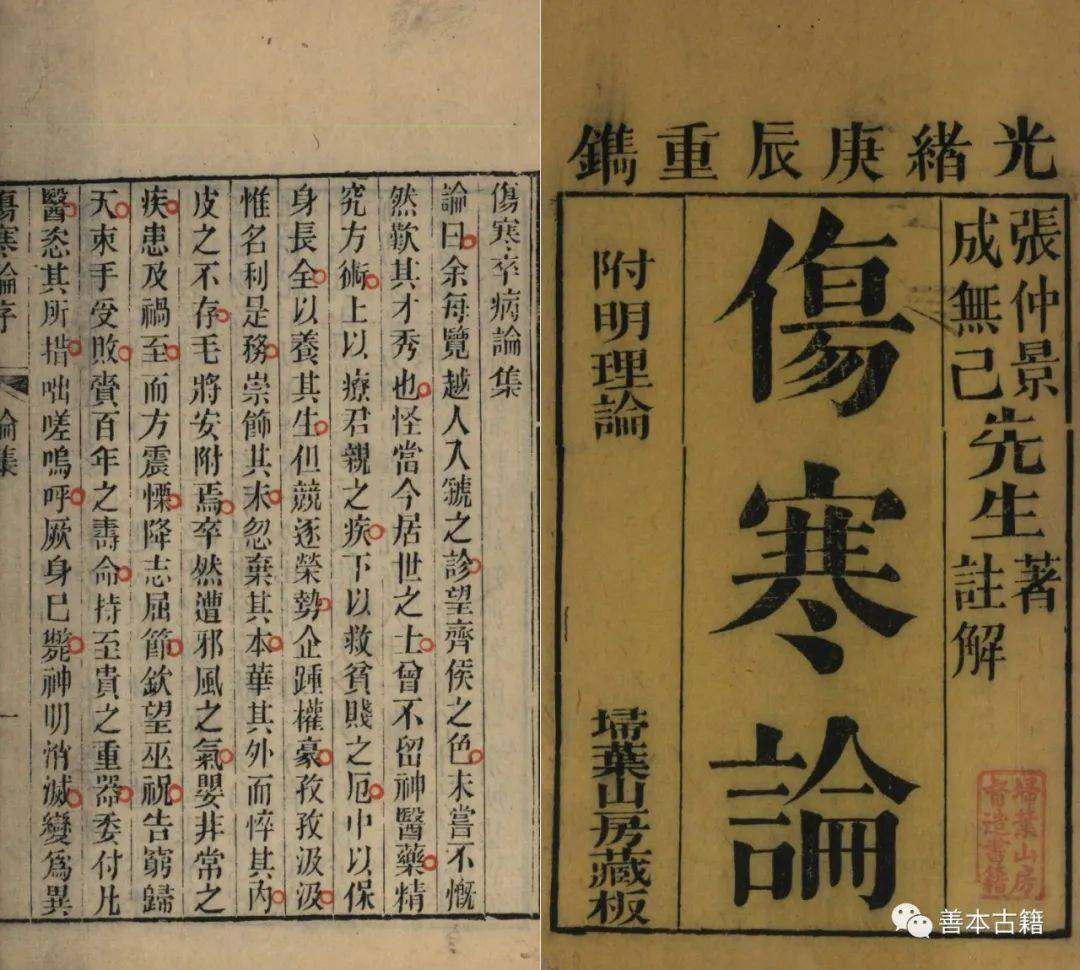 光緒庚辰重鐫
張仲景先生著
成無己先生註解
傷寒論
附明理論
埽葉山房藏板
掃葉山房
督造書籍
善本古籍
傷寒卒病論集
論曰余每覽越人入虢之診望齊侯之色未嘗不慨
然歎其才秀也怪當今居世之士曾不留神醫藥精
究方術上以療君親之疾下以救貧賤之厄中以保
身長全以養其生但競逐榮勢企踵權豪孜孜汲汲
惟名利是務崇飾其末忽棄其本華其外而悴其內
皮之不存毛將安附焉卒然遭邪風之氣嬰非常之
疾患及禍至而方震慄降志屈節欽望巫祝告窮歸
天束手受敗賫百年之壽命持至貴之重器委付凡
醫恣其所措咄嗟嗚呼厥身已斃神明消滅變為異
傷寒論序
論集
一